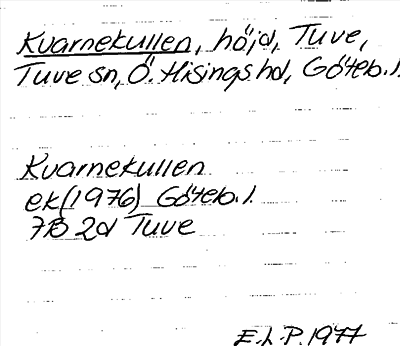 Kvarnekullen, höjd, Tuve,
Tuve sn, Ö. Hisings hd, Göteb. l.
Kvarnekullen
ek(1976) Göteb. l.
7B 2d Tuve
E.L.P. 1977